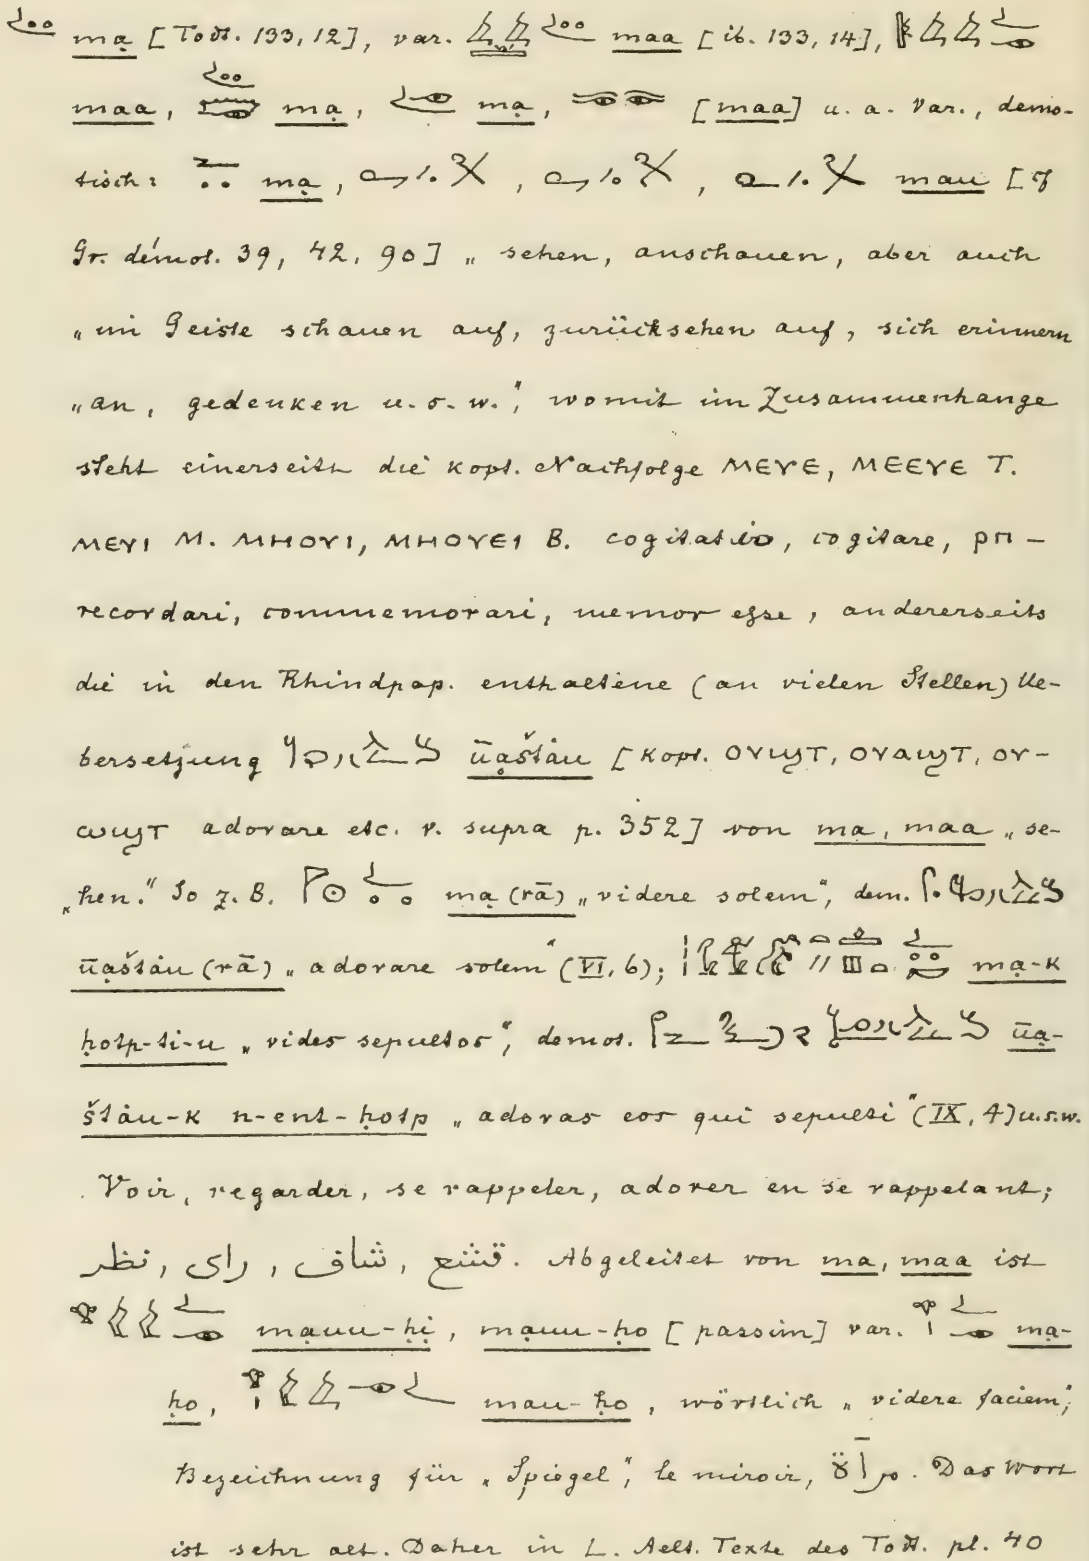 mạ [Todt. 133, 12], var. maa [ib. 133, 14],
maa, mạ, mạ, [maa] u. a. Var., demo-
tisch: mạ, mau [cf
Gr. démot. 39, 42, 90] „sehen, anschauen, aber auch
„im Geiste schauen auf, zurücksehen auf, sich erinnern
„an, gedenken u. s. w.“, womit im Zusammenhange
steht einerseits die kopt. Nachfolge ⲙⲉⲩⲉ, ⲙⲉⲉⲩⲉ T.
ⲙⲉⲩⲓ M. ⲙⲏⲟⲩⲓ, ⲙⲏⲟⲩⲉⲓ B. cogitatio, cogitare,
recordari, commemorari, memor esse, andererseits
die in den Rhindpap. enthaltene (an vielen Stellen) Ue-
bersetzung ūạštȧu [kopt. ⲟⲩⲱϣⲧ, ⲟⲩⲁϣⲧ, ⲟⲩ-
ⲱϣⲧ adorare etc. v. supra p. 352] von ma, maa „se-
„hen.“ So z. B. mạ (rā) „videre solem“, dem.
ūạštȧu (rā) „adorare solem“ (VI, 6); mạ-k
ḥotp-ti-u „vides sepultos“, demot. ūạ-
štȧu-k n-ent-ḥotp „adoras eos qui sepulti“ (IX, 4) u.s.w.
Voir, regarder, se rappeler, adorer en se rappelant;
نظر, راى, شاف, قشع. Abgeleitet von ma, maa ist
mạuu-ḥị, mạuu-ḥo [passim] var. mạ-
ḥo, mau-ḥo, wörtlich „videre faciem“,
Bezeichnung für „Spiegel“, le miroir, مرآة. Das Wort
ist sehr alt. Daher in L. Aelt. Texte des Todt. pl. 40